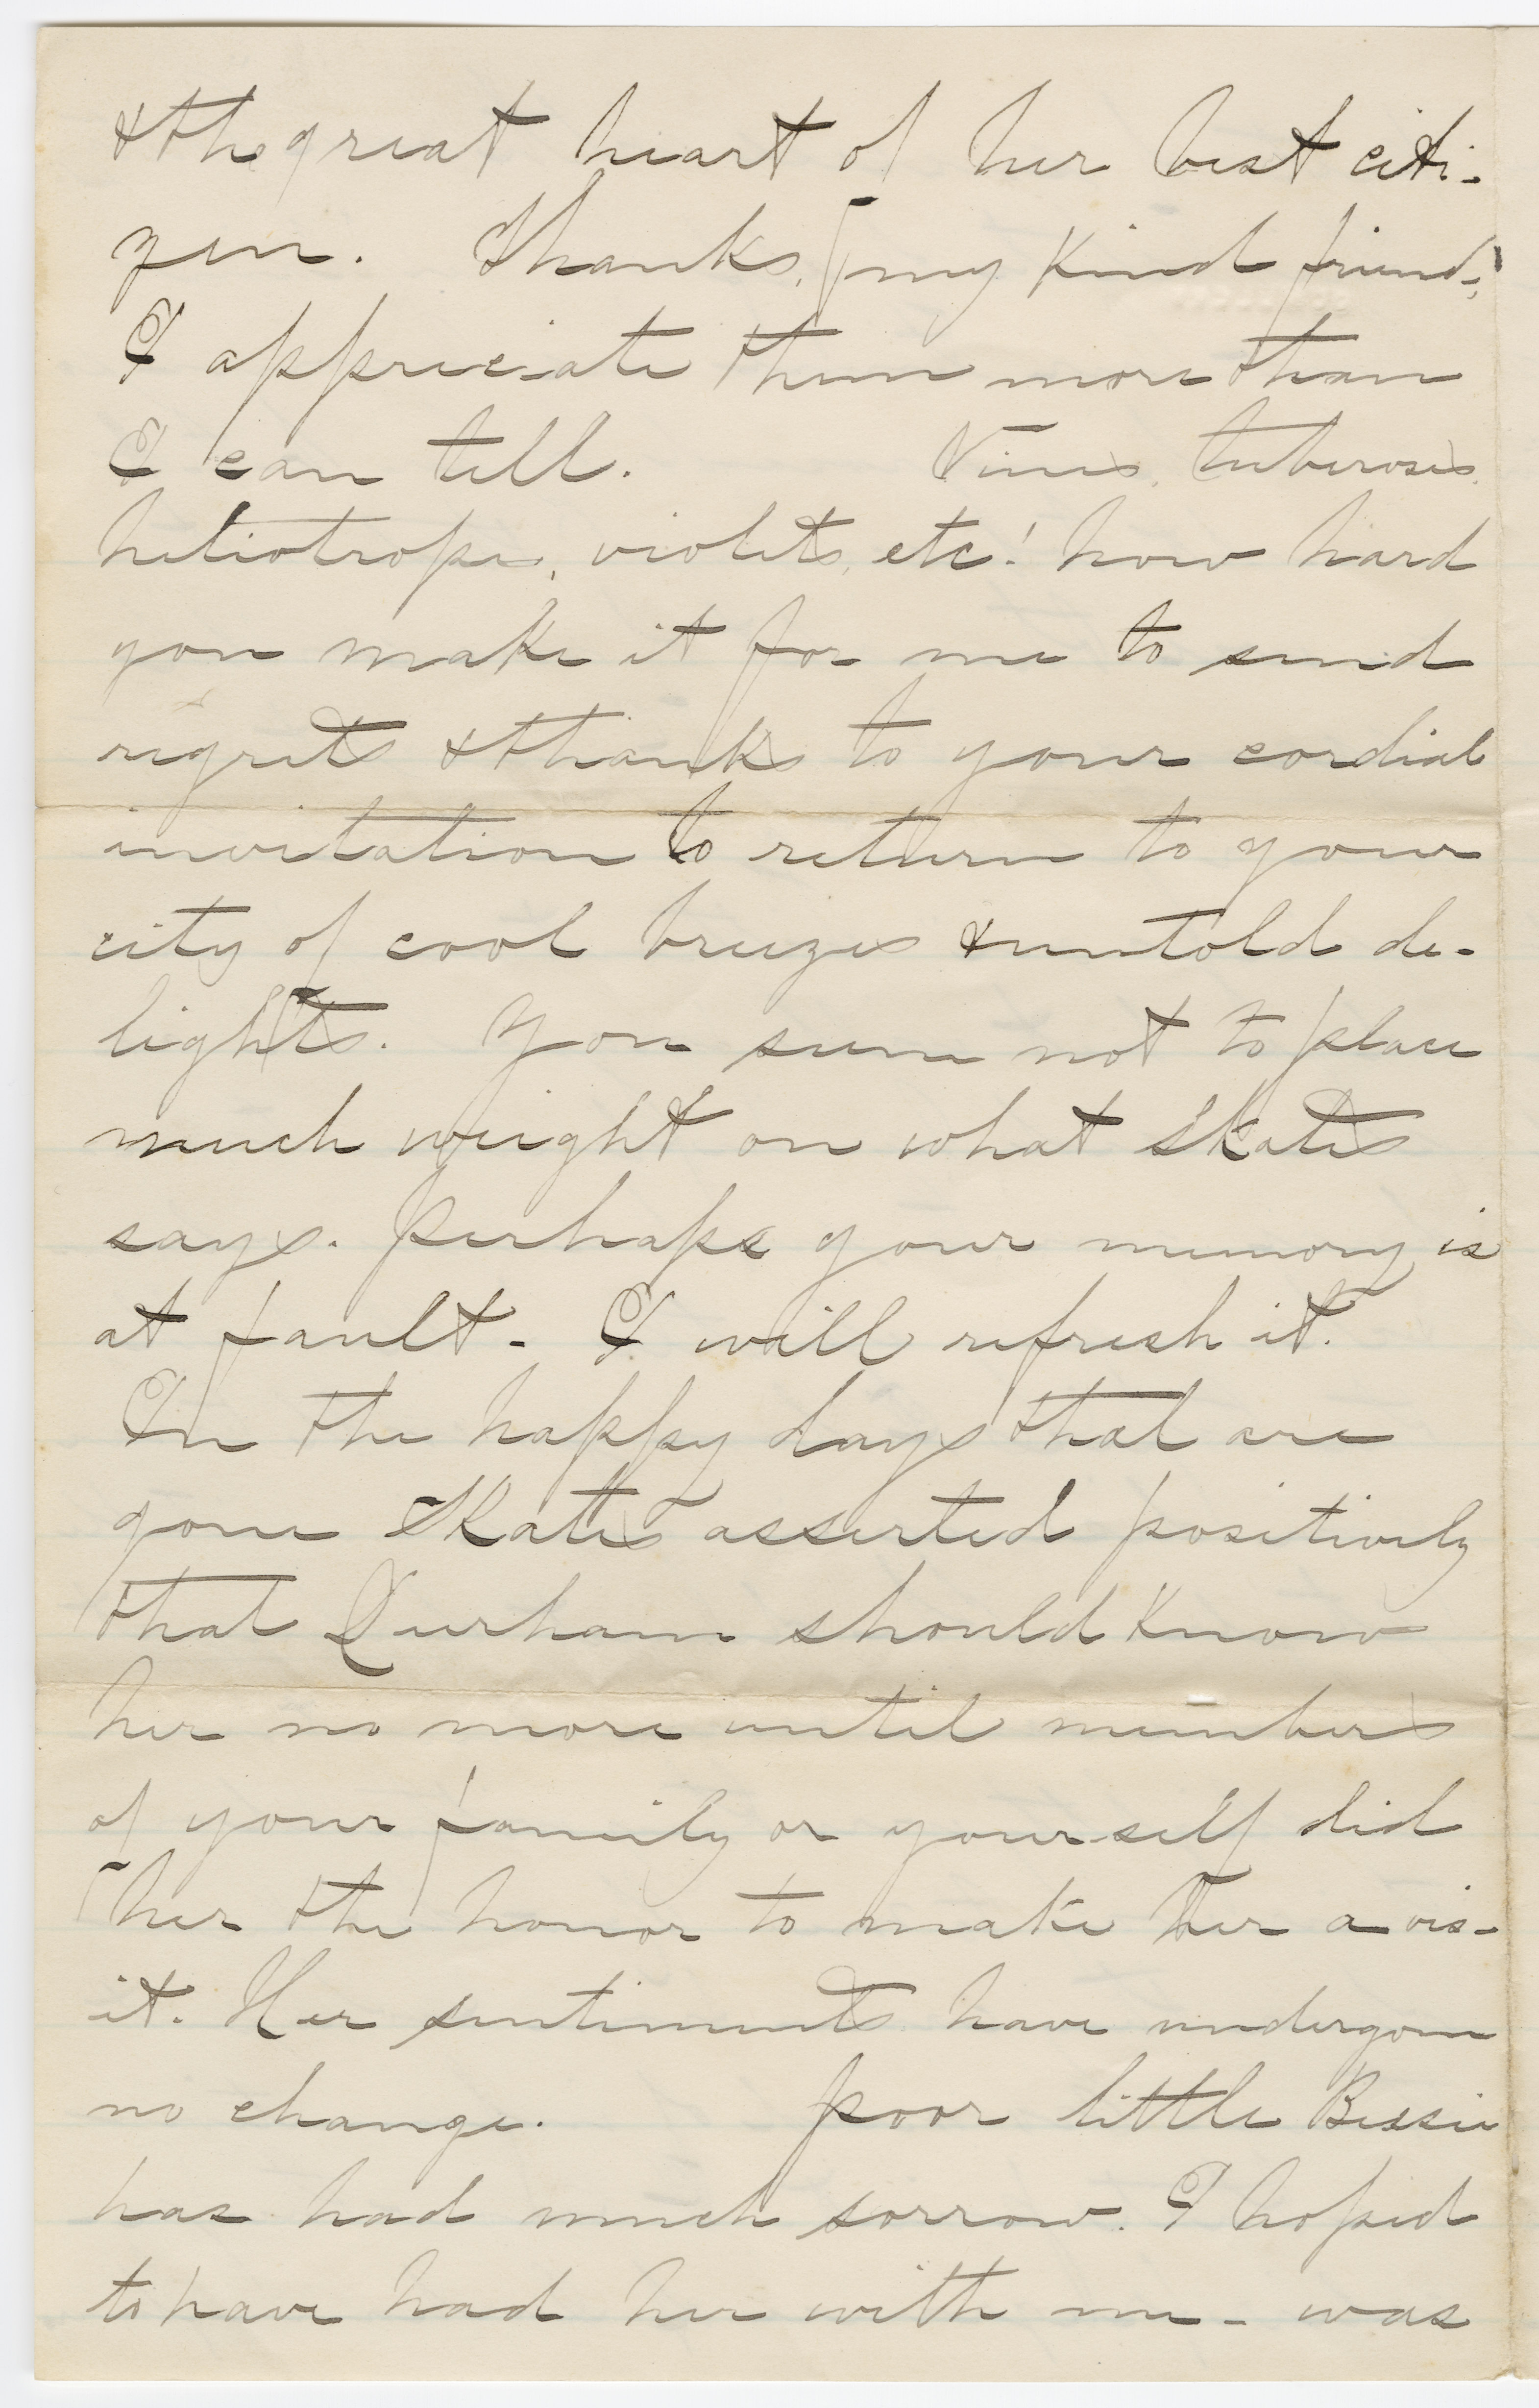 & the great heart of her best citi-
zen. Thanks, my kind friend,
I appreciate them more than
I can tell. Vines, tuberoses,
heliotropes, violets, etc! how hard
you make it for me to send
regrets & thanks to your cordial
invitation to return to your
city of cool breezes & untold de-
lights. You seem not to place
much weight on what Skates
says. Perhaps your memory is
at fault - I will refresh it.
In the happy days that are
gone Skates asserted positively
that Durham should know
her no more until members
of your family or yourself did
her the honor to make her a vis-
it. Her sentiments have undergone
no change. Poor little Bessie
has had much sorrow. I hoped
to have had her with me - was